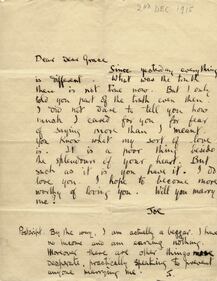 2ND DEC 1915
Dear Dear Grace
Since yesterday everything
is different. What was the truth
then is not true now. But I only
told you part of the truth even then. I
I did not dare to tell you how
much I cared for you for fear
of saying more than I meant.
You know what my sort of love
is. It is a poor thing beside
the splendour of your heart. But
such as it is you have it. I do
love you. I hope to become more
worthy of loving you. Will you marry
me?
Joe
Postscript. By the way, I am actually a beggar. I have
no income and am earning nothing.
Moreover there are other things more
desperate, practically speaking to prevent
anyone marrying me. J.